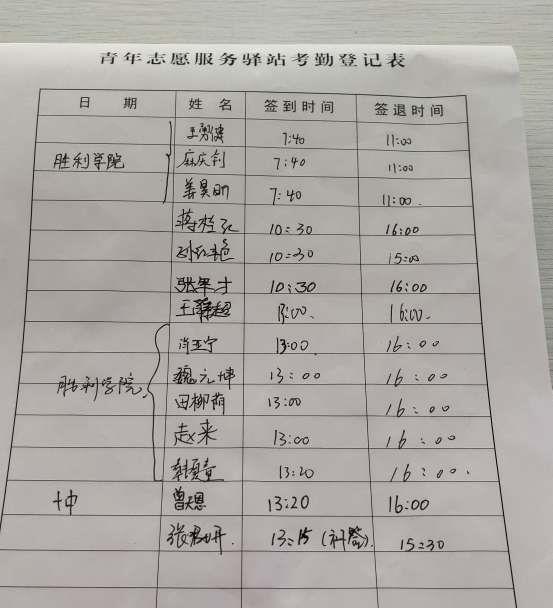 青年志愿服务驿站考勤登记表
日 期 姓 名 签到时间 签退时间
王勇健 7:40 11:00
胜利学院 麻庆钊 7:40 11:00
姜昊明 7:40 11:00.
蒋 10:30 16:00
孙艳 10:30 15:00
张军才 10:30 16:00
王静超 13:00. 16:00.
肖玉宁 13:00 16:00
胜利学院 魏元坤 13:00 16:00
田柳荫 13:00 16:00
赵来 13:00 16:00
韩夏童 13:20 16:00.
曾天恩 13:20 16:00
张 13:15 (补签). 15:30